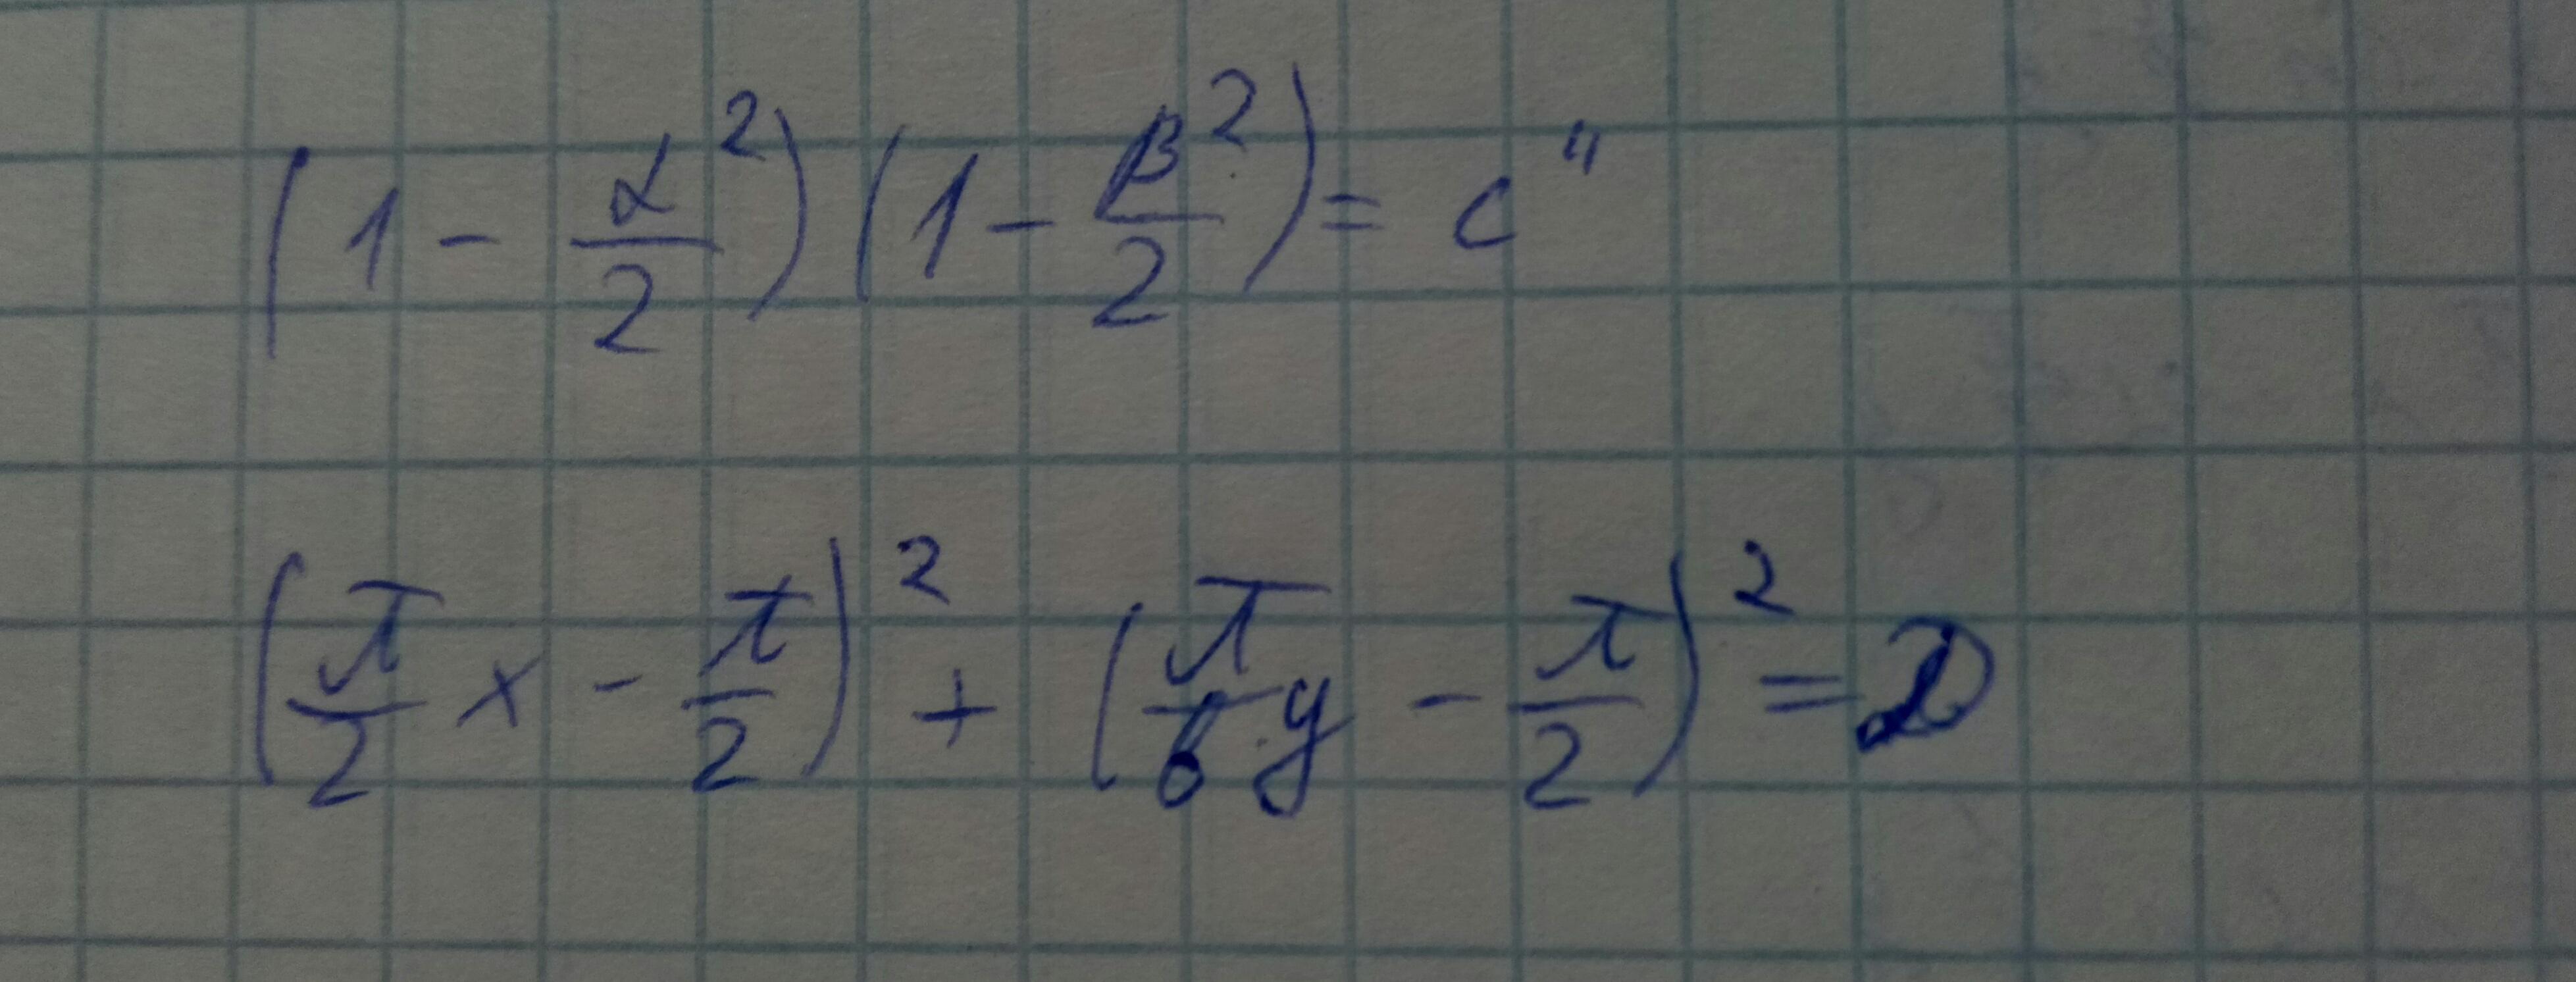 (1 - α²/2)(1 - β²/2) = c"
(π/2 x - π/2)² + (π/6 y - π/2)² = D